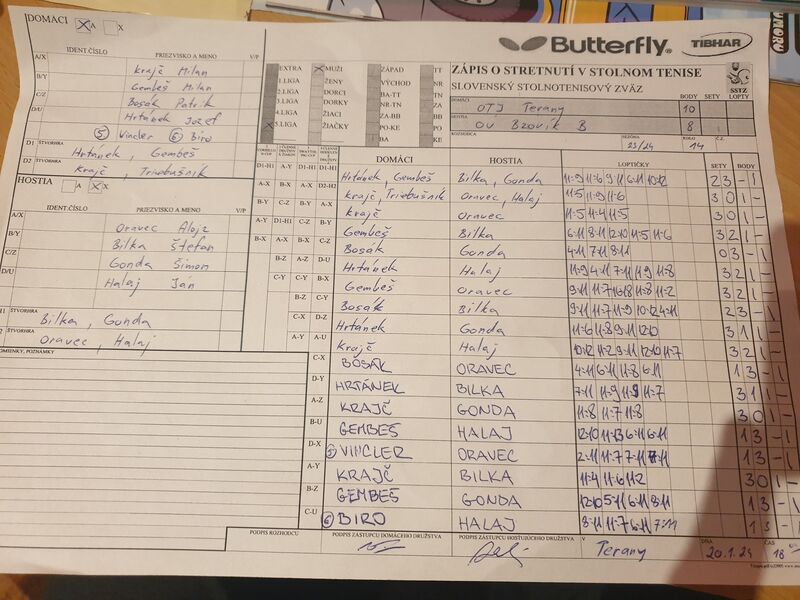 DOMÁCI X A X
Butterfly. TIBHAR
IDENT.ČÍSLO PRIEZVISKO A MENO V/P
A/X Krajč Milan
B/Y Gembeš Milan
C/Z Bosák Patrik
D/U Hrtánek Jozef
5 Vincler 6 Biro
D1 ŠTVORHRA Hrtánek, Gembeš
D2 ŠTVORHRA Krajč, Triebušník
EXTRA X MUŽI ZÁPAD TT
1.LIGA ŽENY VÝCHOD
2.LIGA DORCI BA-TT TN
3.LIGA DORKY NR-TN ZA
4.LIGA ŽIACI ZA-BB
X 5.LIGA ŽIAČKY PO-KE
KE
BA
ZÁPIS O STRETNUTÍ V STOLNOM TENISE
SLOVENSKÝ STOLNOTENISOVÝ ZVÄZ
SSTZ
BODY SETY LOPTY
DOMÁCI OTJ Terany 10
HOSTIA OÚ Bzovík B 8
ROZHODCA SEZÓNA 23/24 KOLO 14 Č.Z.
HOSTIA A X X
IDENT.ČÍSLO PRIEZVISKO A MENO V/P
A/X Oravec Alojz
B/Y Bilka Štefan
C/Z Gonda Šimon
D/U Halaj Ján
ŠTVORHRA Bilka, Gonda
ŠTVORHRA Oravec, Halaj
DOMÁCI HOSTIA LOPTIČKY SETY BODY
Hrtánek, Gembeš Bilka, Gonda 11:9 11:6 9:11 6:11 10:12 2 3 - 1
Krajč, Triebušník Oravec, Halaj 11:5 11:9 11:6 3 0 1 -
Krajč Oravec 11:5 11:4 11:5 3 0 1 -
Gembeš Bilka 6:11 8:11 12:10 11:5 11:6 3 2 1 -
Bosák Gonda 4:11 7:11 8:11 0 3 - 1
Hrtánek Halaj 11:9 4:11 7:11 11:9 11:8 3 2 1 -
Gembeš Oravec 9:11 11:7 16:18 11:8 11:2 3 2 1 -
Bosák Bilka 9:11 11:7 11:9 10:12 4:11 2
Hrtánek Gonda 11:6 11:8 9:11 12:10 3 1 1 -
Krajč Halaj 10:12 11:2 9:11 12:10 11:7 3 2 1 -
C-X BOSÁK ORAVEC 4:11 6:11 11:8 6:11 1 3 - 1
D-Y HRTÁNEK BILKA 7:11 11:9 11:9 11:7 3 1 1 -
A-Z KRAJČ GONDA 11:8 11:7 11:8 3 0 1 -
B-U GEMBEŠ HALAJ 12:10 11:13 6:11 6:11 1 3 - 1
D-X 5 VINCLER ORAVEC 2:11 11:7 7:11 7:11 1 3 - 1
A-Y KRAJČ BILKA 11:4 11:6 11:2 3 0 1 -
B-Z GEMBEŠ GONDA 12:10 5:11 6:11 8:11 1 3 - 1
C-U 6 BIRO HALAJ 8:11 11:7 6:11 7:11 1 3 - 1
PODPIS ROZHODCU PODPIS ZÁSTUPCU DOMÁCEHO DRUŽSTVA PODPIS ZÁSTUPCU HOSŤUJÚCEHO DRUŽSTVA V Terany DŇA 20.1.24 ČAS 18